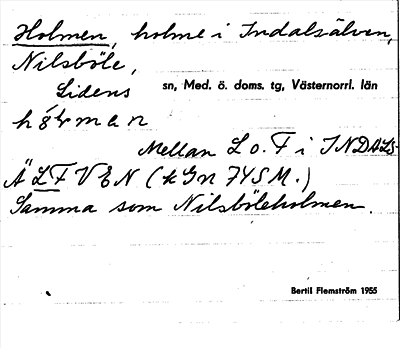 Holmen, holme i Indalsälven,
Nilsböle,
Lidens sn, Med. ö. doms. tg, Västernorrl. län
Mellan L o. F i INDALS-
ÄLFVEN (kGn 74SM.)
Samma som Nilsböleholmen.
Bertil Flemström 1955